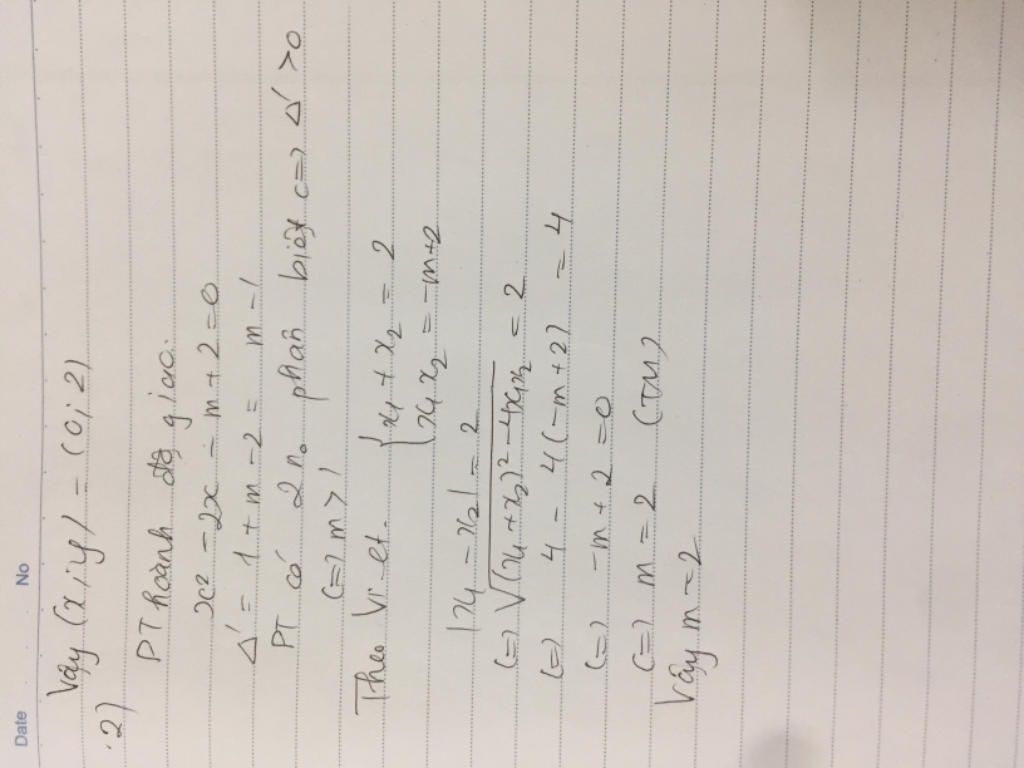 Date No
Vậy (x;y) = (0;2)
2)
PT hoành độ giao.
x² - 2x - m + 2 = 0
Δ' = 1 + m - 2 = m - 1
PT có 2 no phân biệt <=> Δ' > 0
<=> m > 1
Theo Vi-et. { x₁ + x₂ = 2
x₁x₂ = -m+2
|x₁ - x₂| = 2
<=> √(x₁+x₂)² - 4x₁x₂ = 2
<=> 4 - 4(-m+2) = 4
<=> -m + 2 = 0
<=> m = 2 (TM)
Vậy m = 2